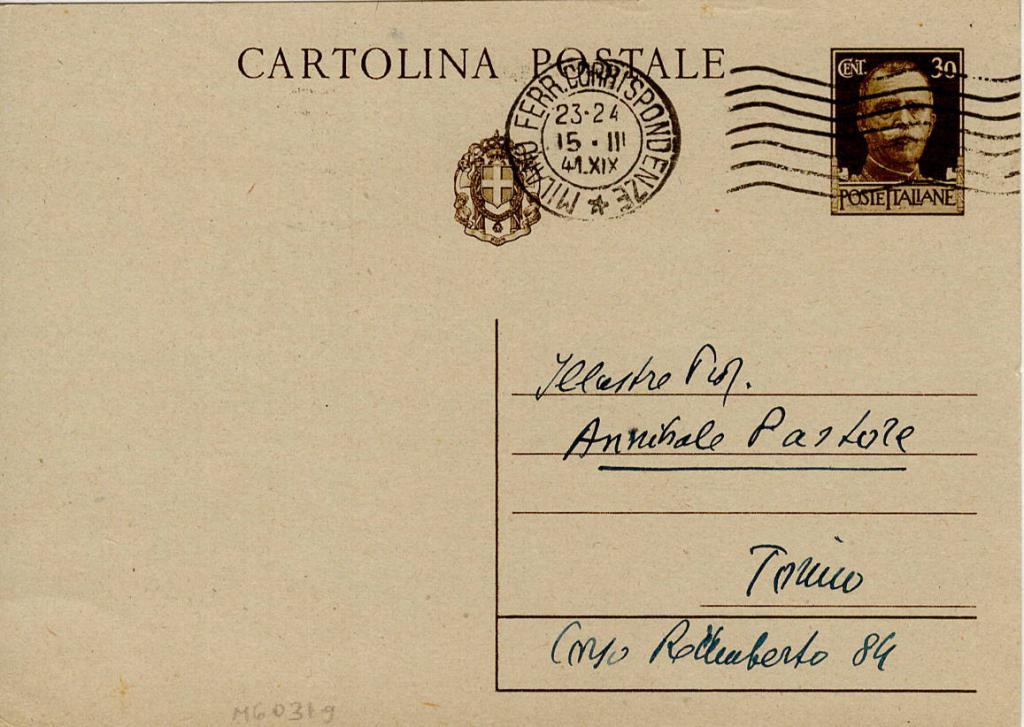 CARTOLINA POSTALE
CENT. 30
POSTE ITALIANE
MILANO FERR. CORRISPONDENZE
23-24
15 · III
41.XIX
Illustre Prof.
Annibale Pastore
Torino
Corso Re Umberto 84
M60319